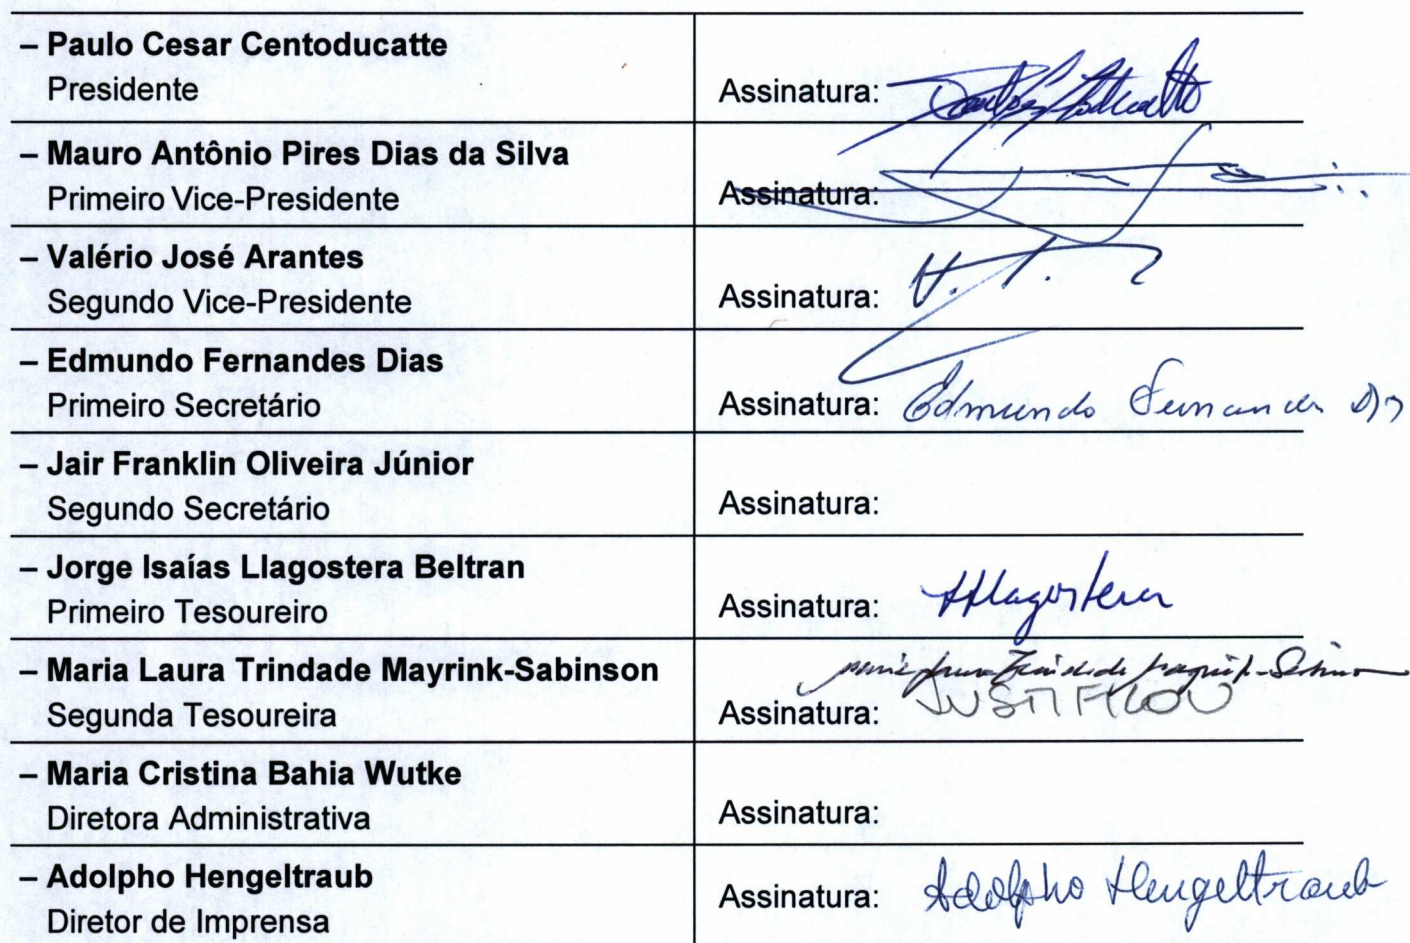 – Paulo Cesar Centoducatte
Presidente
Assinatura:
– Mauro Antônio Pires Dias da Silva
Primeiro Vice-Presidente
Assinatura:
– Valério José Arantes
Segundo Vice-Presidente
Assinatura:
– Edmundo Fernandes Dias
Primeiro Secretário
Assinatura: Edmundo Fernandes Dias
– Jair Franklin Oliveira Júnior
Segundo Secretário
Assinatura:
– Jorge Isaías Llagostera Beltran
Primeiro Tesoureiro
Assinatura: Llagostera
– Maria Laura Trindade Mayrink-Sabinson
Segunda Tesoureira
Maria Laura Trindade Mayrink-Sabinson
Assinatura: JUSTIFICOU
– Maria Cristina Bahia Wutke
Diretora Administrativa
Assinatura:
– Adolpho Hengeltraub
Diretor de Imprensa
Assinatura: Adolpho Hengeltraub